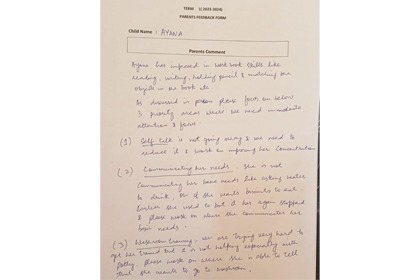 TERM 1( 2023-2024)
PARENTS FEEDBACK FORM
Child Name : AYANA
Parents Comment
Ayana has improved in workbook skills like
reading, writing, holding pencil & matching the
objects in the book etc
As discussed in person please focus on below
3 priority areas where we need immediate
attention & focus
(1) Self talk is not going away & we need to
reduce it & work on improving her concentration
(2) Communicating her needs. She is not
communicating her basic needs like asking water
to drink, or if she wants biscuits to eat.
Earlier she used to but it has again stopped
& please work on where she communicates her
basic needs.
(3) Washroom training. We are trying very hard to
get her trained but it is not helping especially with
potty. Please work on where she is able to tell
that she wants to go to washroom.